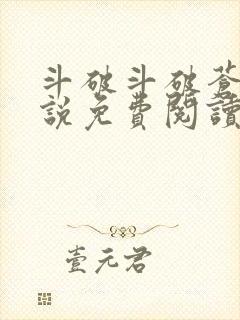 斗破斗破蒼
說免費閱讀
壹元君